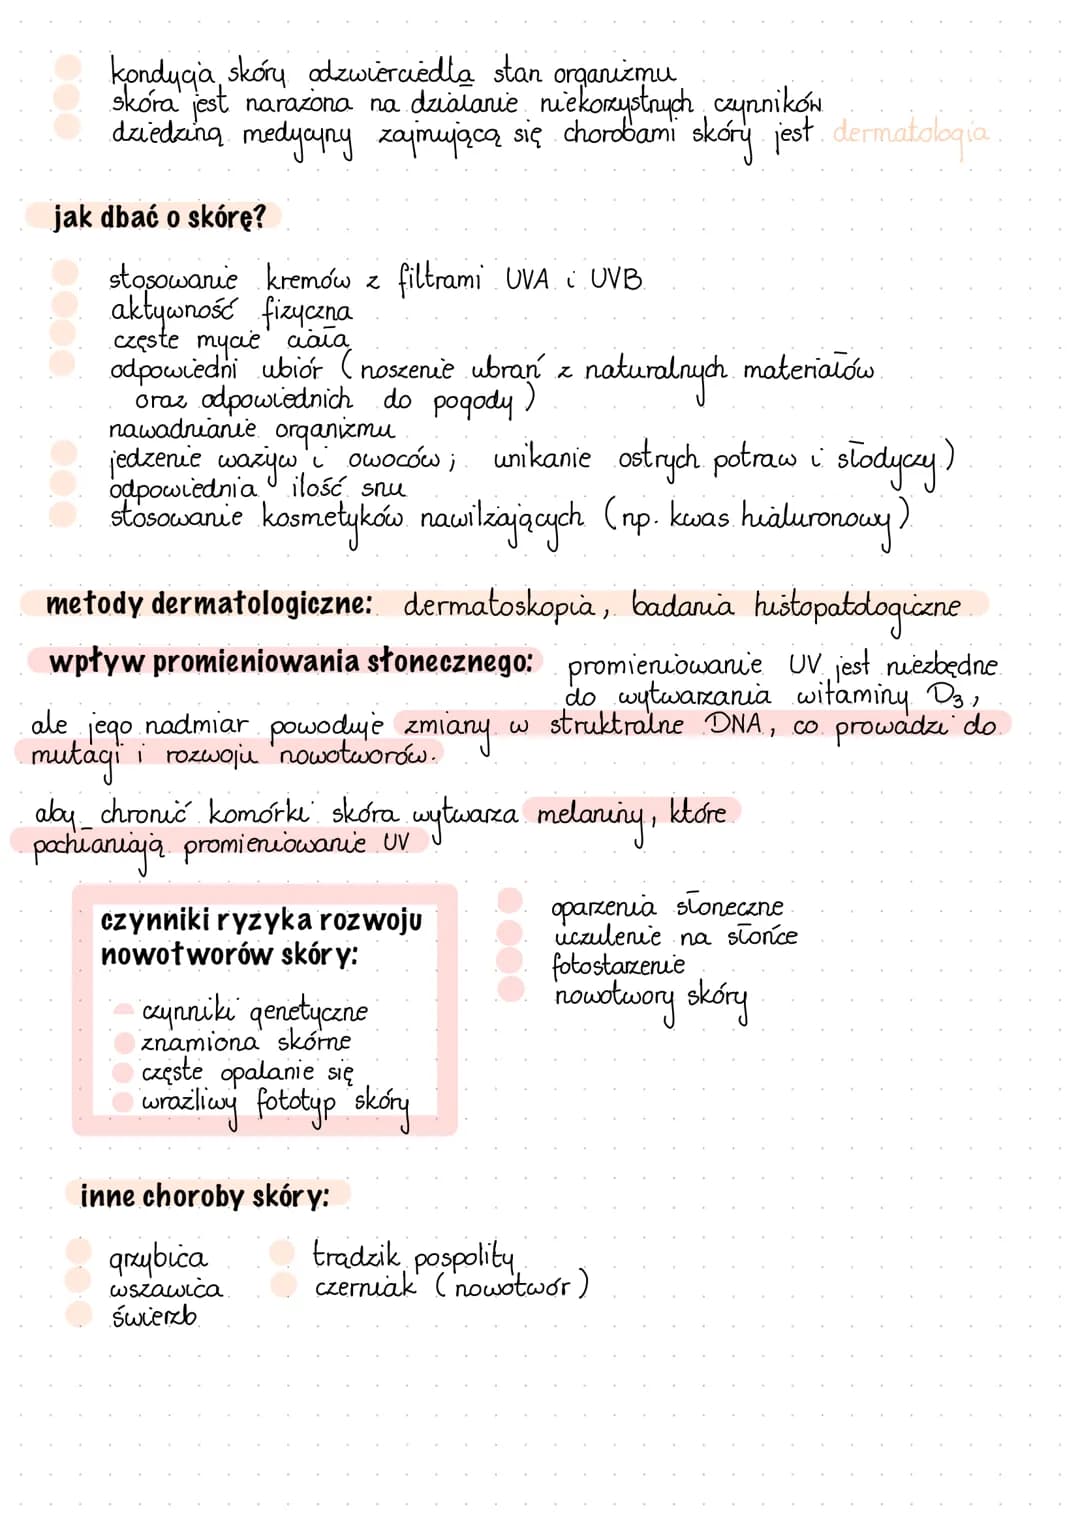 kondycja skóry odzwierciedla stan organizmu
skóra jest narażona na działanie niekorzystnych czynników
dziedziną medycyny zajmującą się chorobami skóry jest dermatologia
jak dbać o skórę?
stosowanie kremów z filtrami UVA i UVB
aktywność fizyczna
częste mycie ciała
odpowiedni ubiór (noszenie ubrań z naturalnych materiałów
oraz odpowiednich do pogody)
nawadnianie organizmu
jedzenie warzyw i owoców; unikanie ostrych potraw i słodyczy)
odpowiednia ilość snu
stosowanie kosmetyków nawilżających (np. kwas hialuronowy)
metody dermatologiczne: dermatoskopia, badania histopatologiczne
wpływ promieniowania słonecznego: promieniowanie UV jest niezbędne
do wytwarzania witaminy D3,
ale jego nadmiar powoduje zmiany w struktralne DNA, co prowadzi do
mutagi i rozwoju nowotworów.
aby chronić komórki skóra wytwarza melaniny, które
pochłaniają promieniowanie UV
czynniki ryzyka rozwoju
nowotworów skóry:
czynniki genetyczne
znamiona skórne
częste opalanie się
wrażliwy fototyp skóry
oparzenia słoneczne
uczulenie na słońce
fotostarzenie
nowotwory skóry
inne choroby skóry:
grzybica
wszawica
świerzb
trądzik pospolity
czerniak (nowotwór)